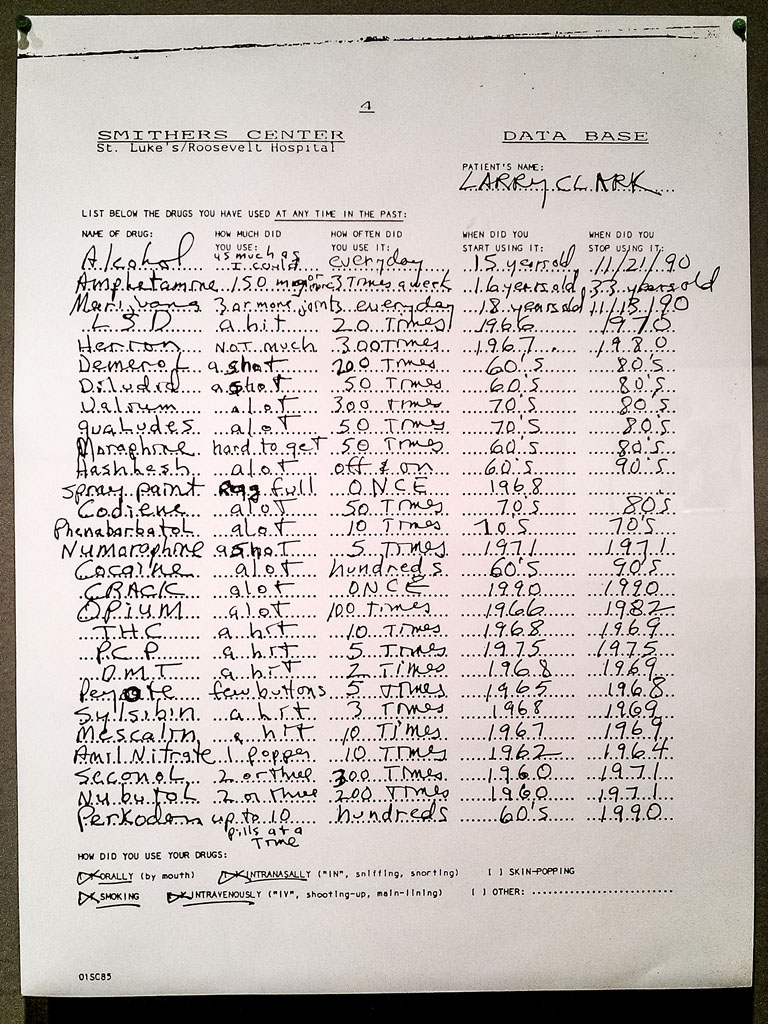 4
SMITHERS CENTER DATA BASE
St. Luke's/Roosevelt Hospital
PATIENT'S NAME:
LARRY CLARK
LIST BELOW THE DRUGS YOU HAVE USED AT ANY TIME IN THE PAST:
NAME OF DRUG: HOW MUCH DID YOU USE: HOW OFTEN DID YOU USE IT: WHEN DID YOU START USING IT: WHEN DID YOU STOP USING IT:
Alcohol as much as I could everyday 15 years old 11/21/90
Amphetamine 150 mg or more 3 Times a week 16 years old 33 years old
Marijuana 3 or more joints everyday 18 years old 11/13/90
LSD a hit 20 Times 1966 1970
Herion NOT much 300 Times 1967 1980
Demerol a shot 200 Times 60's 80's
Diludid a shot 50 Times 60's 80's
Valium alot 300 Times 70's 80's
qualudes alot 50 Times 70's 80's
Moraphine hard to get 50 Times 60's 80's
Hashhesh alot off & on 60's 90's
spray paint Rag full ONCE 1968
Codiene alot 50 Times 70's 80s
Phenabarbatol alot 10 Times 70's 70's
Numoraphine a shot 5 Times 1971 1971
Cocaine alot hundreds 60's 90's
CRACK alot ONCE 1990 1990
OPIUM alot 100 times 1966 1982
THC a hit 10 Times 1968 1969
P.C.P a hit 5 Times 1975 1975
DMT a hit 2 Times 1968 1969
Peyote few buttons 5 Times 1965 1968
Syllsibin a hit 3 Times 1968 1969
Mescalin a hit 10 Times 1967 1969
Amil Nitrate 1 popper 10 Times 1962 1964
Seconol 2 or three 300 Times 1960 1971
Nubutol 2 or three 200 Times 1960 1971
Perkodan up to 10 pills at a Time hundreds 60's 1990
HOW DID YOU USE YOUR DRUGS:
[X] ORALLY (by mouth) [X] INTRANASALLY ("IN", sniffing, snorting) [ ] SKIN-POPPING
[X] SMOKING [X] INTRAVENOUSLY ("IV", shooting-up, main-lining) [ ] OTHER:
01SC85